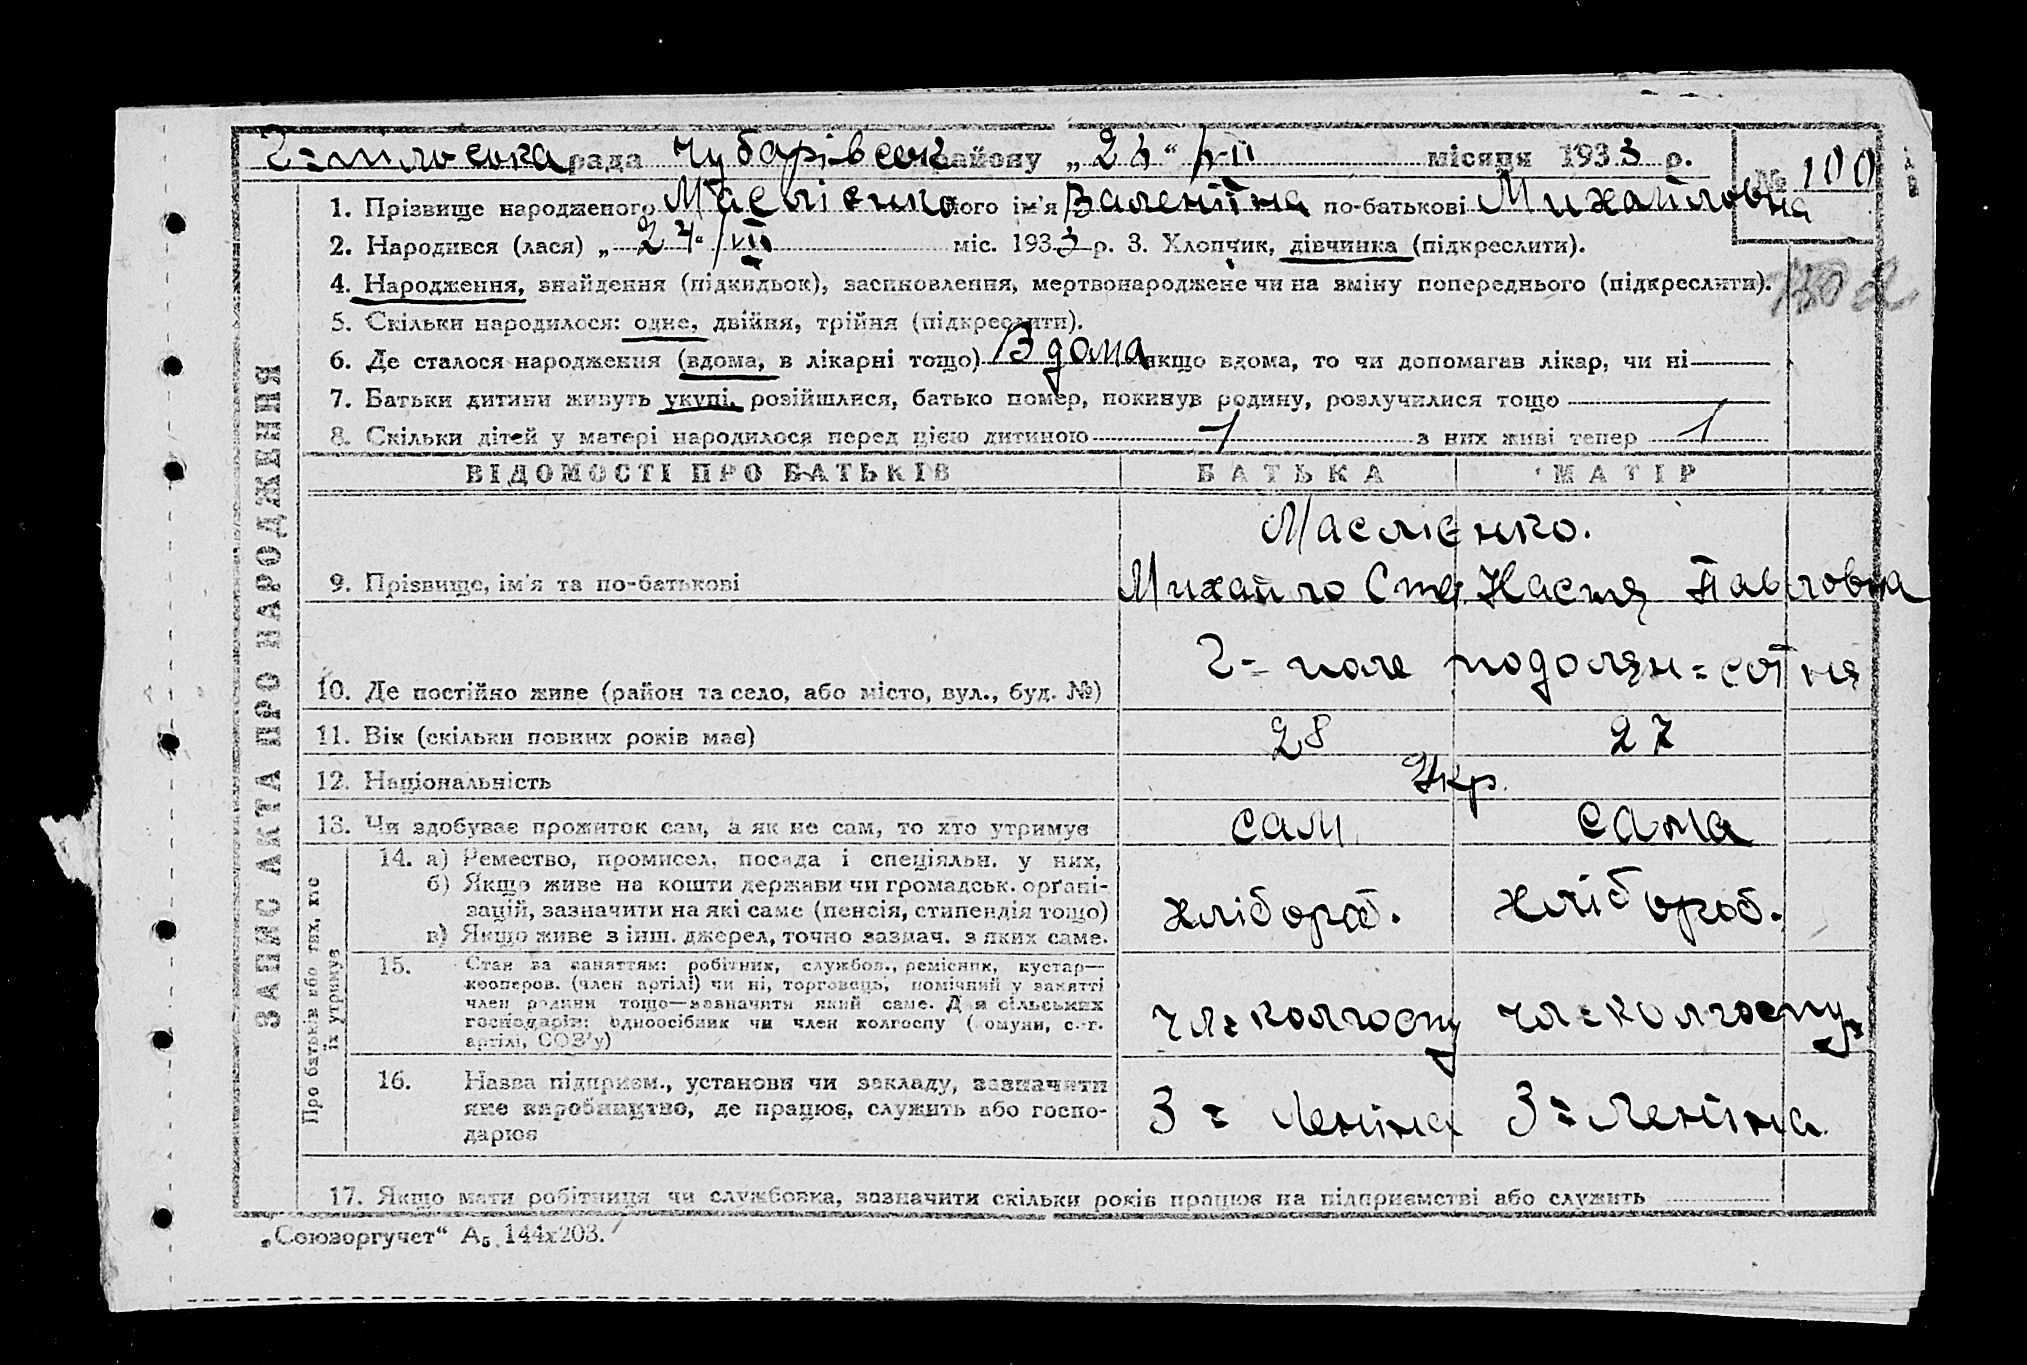 рада Чубарівськ району „ 2 “ місяця 1933 р. № 100
1. Прізвище народженого Маслієнко його ім'я Валентіна по-батькові Михайловна
2. Народився (лася) „ 24 “ / VII міс. 1933 р. 3. Хлопчик, дівчинка (підкреслити).
4. Народження, знайдення (підкидьок), засиновлення, мертвонароджене чи на зміну попереднього (підкреслити).
5. Скільки народилося: одне, двійня, трійня (підкреслити).
6. Де сталося народження (вдома, в лікарні тощо) Вдома якщо вдома, то чи допомагав лікар, чи ні
7. Батьки дитини живуть укупі, розійшлися, батько помер, покинув родину, розлучилися тощо
8. Скільки дітей у матері народилося перед цією дитиною 1 з них живі тепер 1
ЗАПИС АКТА ПРО НАРОДЖЕННЯ
ВІДОМОСТІ ПРО БАТЬКІВ БАТЬКА МАТІР
Маслієнко.
9. Прізвище, ім'я та по-батькові Михайло Ст Настя Павловна
10. Де постійно живе (район та село, або місто, вул., буд. №) Г= поле подолян=сотня
11. Вік (скільки повних років має) 28 27
12. Національність Укр.
13. Чи здобуває прожиток сам, а як не сам, то хто утримує сам сама
Про батьків або тих, хто їх утримує
14. а) Ремество, промисел, посада і спеціяльн. у них,
б) Якщо живе на кошти держави чи громадськ. орґані-
зацій, зазначити на які саме (пенсія, стипендія тощо) хлібороб. хлібороб.
в) Якщо живе з інш. джерел, точно зазнач. з яких саме.
15. Стан за заняттям: робітник, службов., ремісник, кустар—
кооперов. (член артілі) чи ні, торговець, помічний у занятті
член родини тощо—зазначити який саме. Для сільських
господарів: одноосібник чи член колгоспу (комуни, с.-г.
артілі, СОЗ'у) чл=колгоспу чл=колгоспу
16. Назва підприєм., установи чи закладу, зазначити
яке виробництво, де працює, служить або госпо-
дарює З= Леніна З= Леніна
17. Якщо мати робітниця чи службовка, зазначити скільки років працює на підприємстві або служить
„Союзоргучет“ А₅ 144х203.